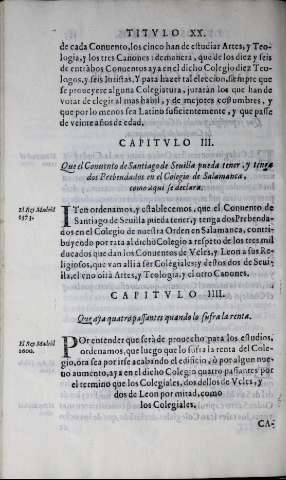 TITVLO XX.
de cada Conuento, los cinco han de estudiar Artes, y Teo-
logia, y los tres Canones: demanera, que de los diez y seis
de entrãbos Conuentos aya en el dicho Colegio diez Teo-
logos, y seis Iuristas. Y para hazer tal eleccion, siempre que
se proueyere alguna Colegiatura, jurarán los que han de
votar de elegir al mas habil, y de mejores costumbres, y
que por lo menos sea Latino suficientemente, y que passe
de veinte años de edad.
CAPITVLO III.
Que el Conuento de Santiago de Seuilla pueda tener, y tenga
dos Prebendados en el Colegio de Salamanca,
como aqui se declara.
El Rey Madrid
1573.
ITen ordenamos, y establecemos, que el Conuento de
Santiago de Seuilla pueda tener, y tenga dos Prebenda-
dos en el Colegio de nuestra Orden en Salamanca, contri-
buyendo por rata al dicho Colegio a respeto de los tres mil
ducados que dan los Conuentos de Vcles, y Leon a sus Re-
ligiosos, que van alli a ser Colegiales: y destos dos de Seui-
lla, el vno oirà Artes, y Teologia, y el otro Canones.
CAPITVLO IIII.
Que aya quatro passantes quando lo sufra la renta.
El Rey Madrid
1600.
POr entender que serà de prouecho para los estudios,
ordenamos, que luego que lo sufra la renta del Cole-
gio, ora sea por irse acabando el edificio, ò por algun nue-
uo aumento, aya en el dicho Colegio quatro passantes por
el termino que los Colegiales, dos dellos de Vcles, y
dos de Leon por mitad, como
los Colegiales.
CA-